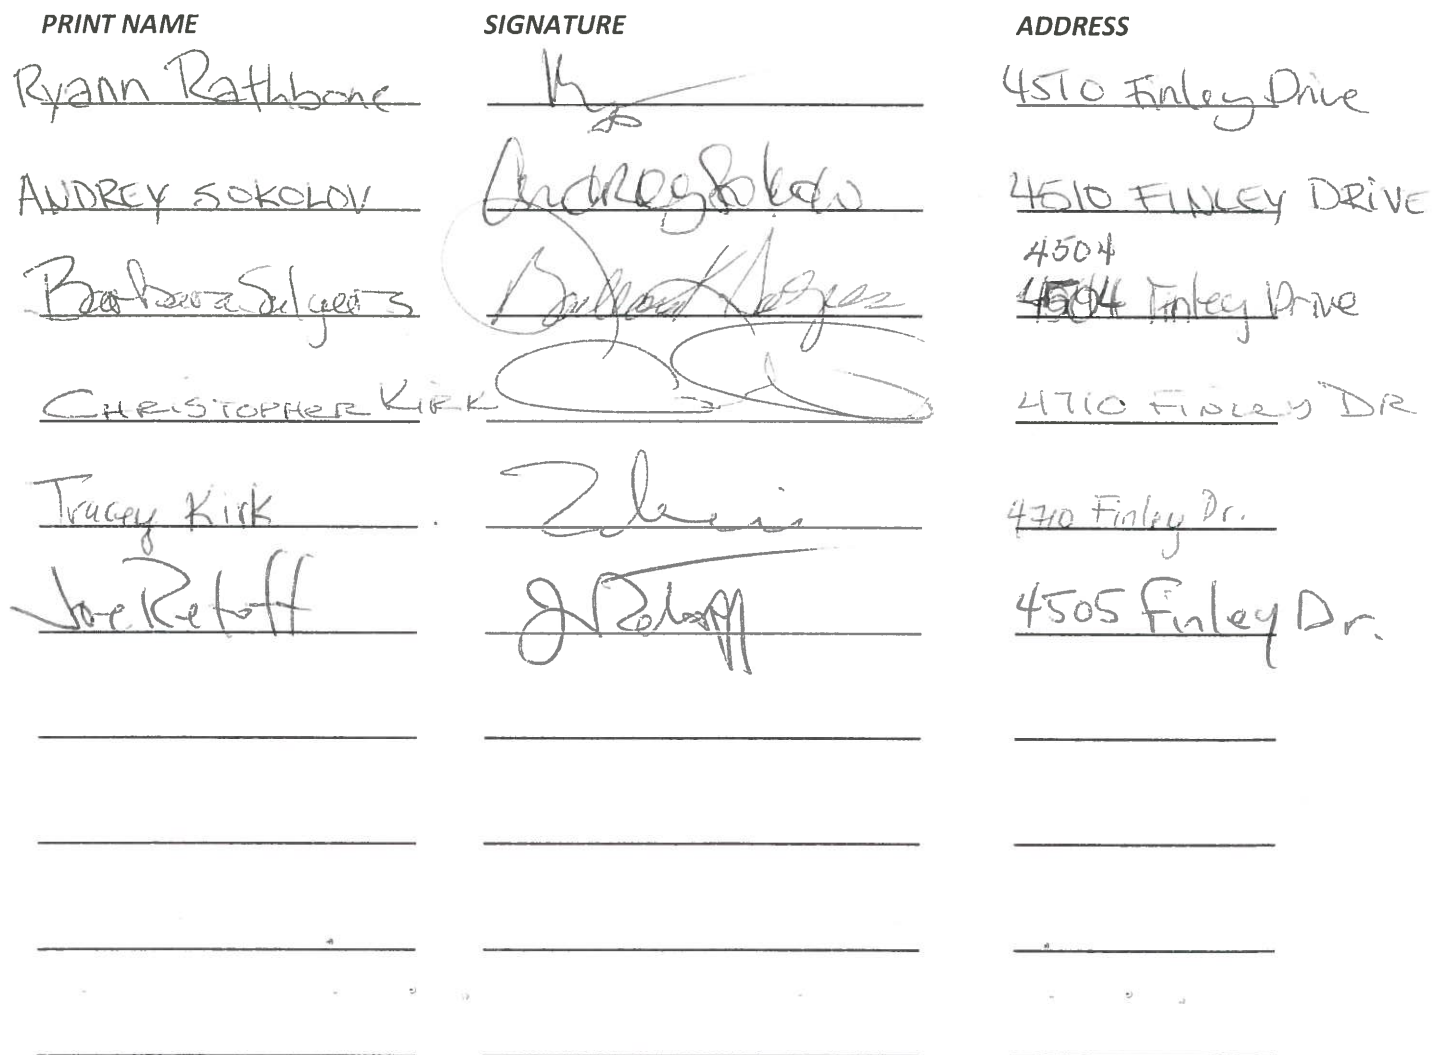 PRINT NAME SIGNATURE ADDRESS
Ryann Rathbone 4510 Finley Drive
ANDREY SOKOLOV Andrey Sokolov 4510 FINLEY DRIVE
4504
Barbara Salyers Barbara K Salyers 4504 Finley Drive
CHRISTOPHER KIRK 4710 FINLEY DR
Tracey Kirk 4710 Finley Dr.
Joe Retoff J Retoff 4505 Finley Dr.